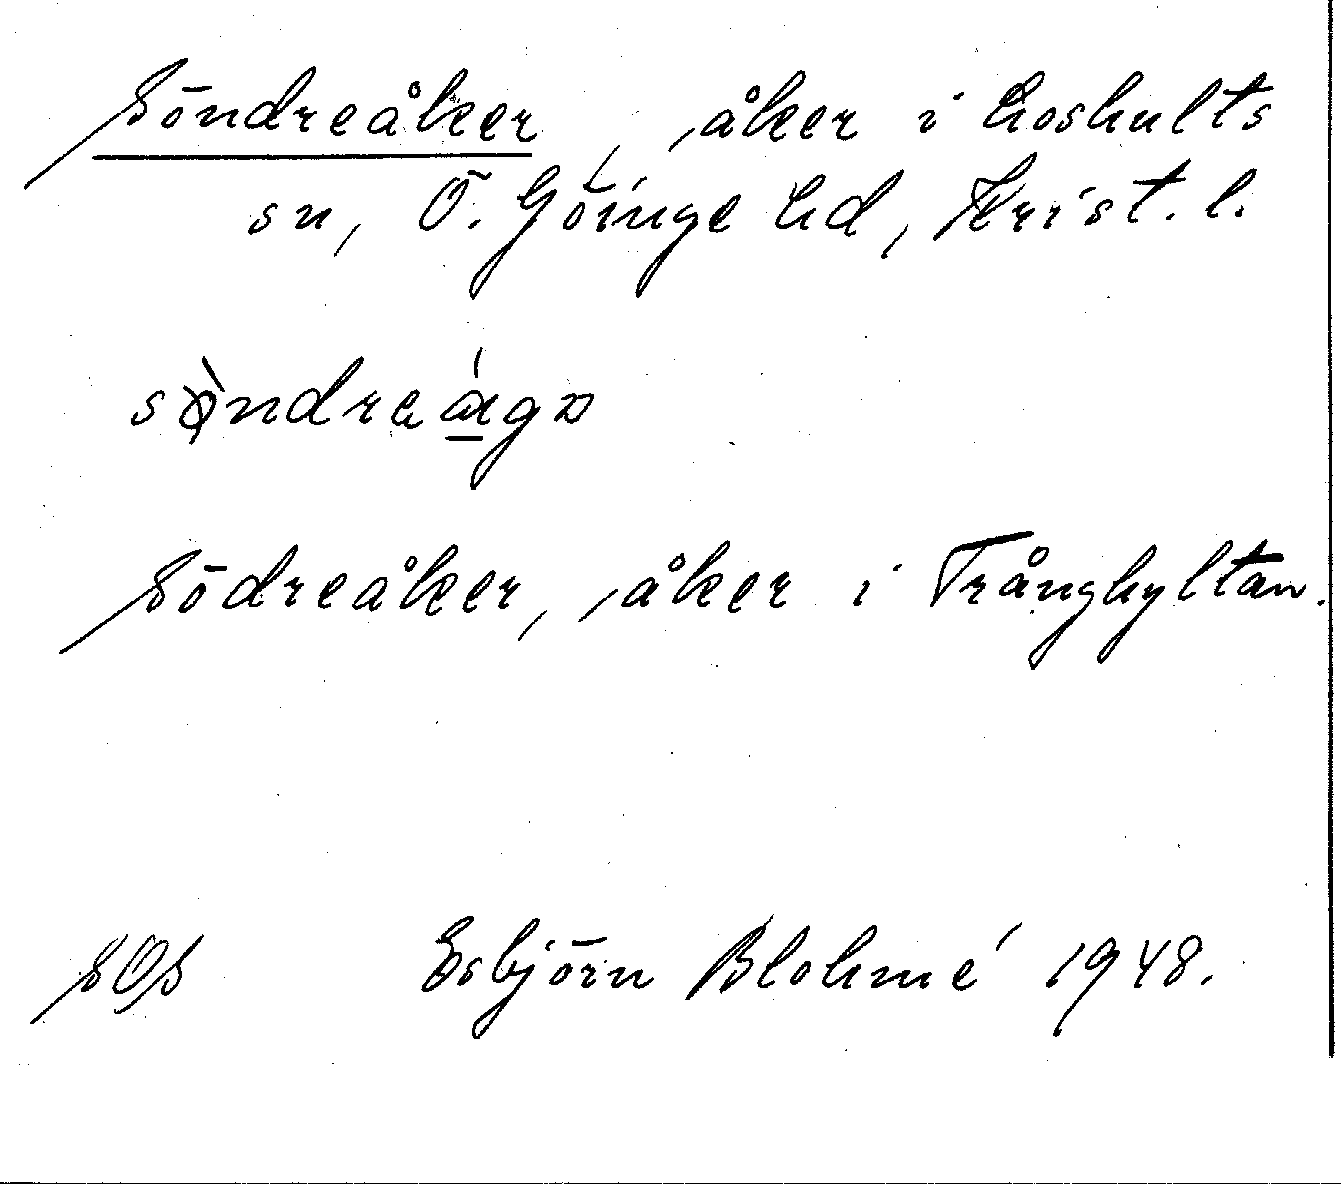 Söndreåker, åker i Loshults
sn, Ö. Göinge hd, Krist. l.
Södreåker, åker i Trånghyltan.
SOS Esbjörn Blohmé 1948.